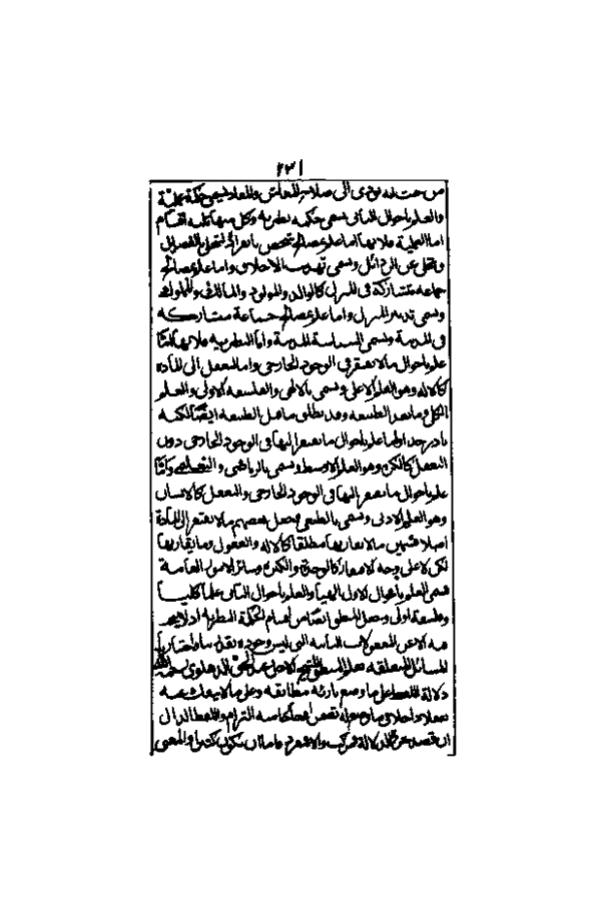 ٢٢١
من حيث انه يؤدي الى صلاح المعاش والمعاد يسمى حكمة عملية
والعلم باحوال الثاني يسمى حكمة نظرية وكل منهما ثلثة اقسام
اما العملية فلانها اما علم بمصالح شخص بانفراده ليتحلى بالفضايل
ويتخلى عن الرذائل ويسمى تهذيب الاخلاق واما علم بمصالح
جماعة متشاركة في المنزل كالوالد والمولود والمالك والمملوك
ويسمى تدبير المنزل واما علم بمصالح جماعة متشاركة
في المدينة ويسمى السياسة المدنية واما النظرية فلانها اما
علم باحوال ما لا يفتقر في الوجود الخارجي والتعقل الى المادة
كالاله وهو العلم الاعلى ويسمى بالالهي والفلسفة الاولى والعلم
الكلي وما بعد الطبيعة وقد يطلق ما قبل الطبيعة ايضا لكنه
نادر جدا واما علم باحوال ما يفتقر اليها في الوجود الخارجي دون
التعقل كالكرة وهو العلم الاوسط ويسمى بالرياضي والتعليمي واما
علم باحوال ما يفتقر اليها في الوجود الخارجي والتعقل كالانسان
وهو العلم الادنى ويسمى بالطبيعي وجعل بعضهم ما لا يفتقر الى المادة
اصلا قسمين ما لا يقارنها مطلقا كالاله والعقول وما يقارنها
لكن لا على وجه الافتقار كالوحدة والكثرة وسائر الامور العامة
فسمى العلم باحوال الاول الهيا والعلم باحوال الثاني علما كليا
وفلسفة اولى وجعل المنطق ايضا من اقسام الحكمة النظرية اذ لا يبحث
فيه الا عن المعقولات الثانية التي ليس وجودها بقدرتنا واختيارنا
المسائل المتعلقة بعلم المنطق للشيخ الاجل عبد الحق الدهلوي رحمه الله
دلالة اللفظ على ما وضع بازائه مطابقة وعلى ما لا ينفك عنه
التزام واللفظ الدال
ان قصد بجزئه الدلالة فمركب والا فمفرد فاما ان يكون والمعنى